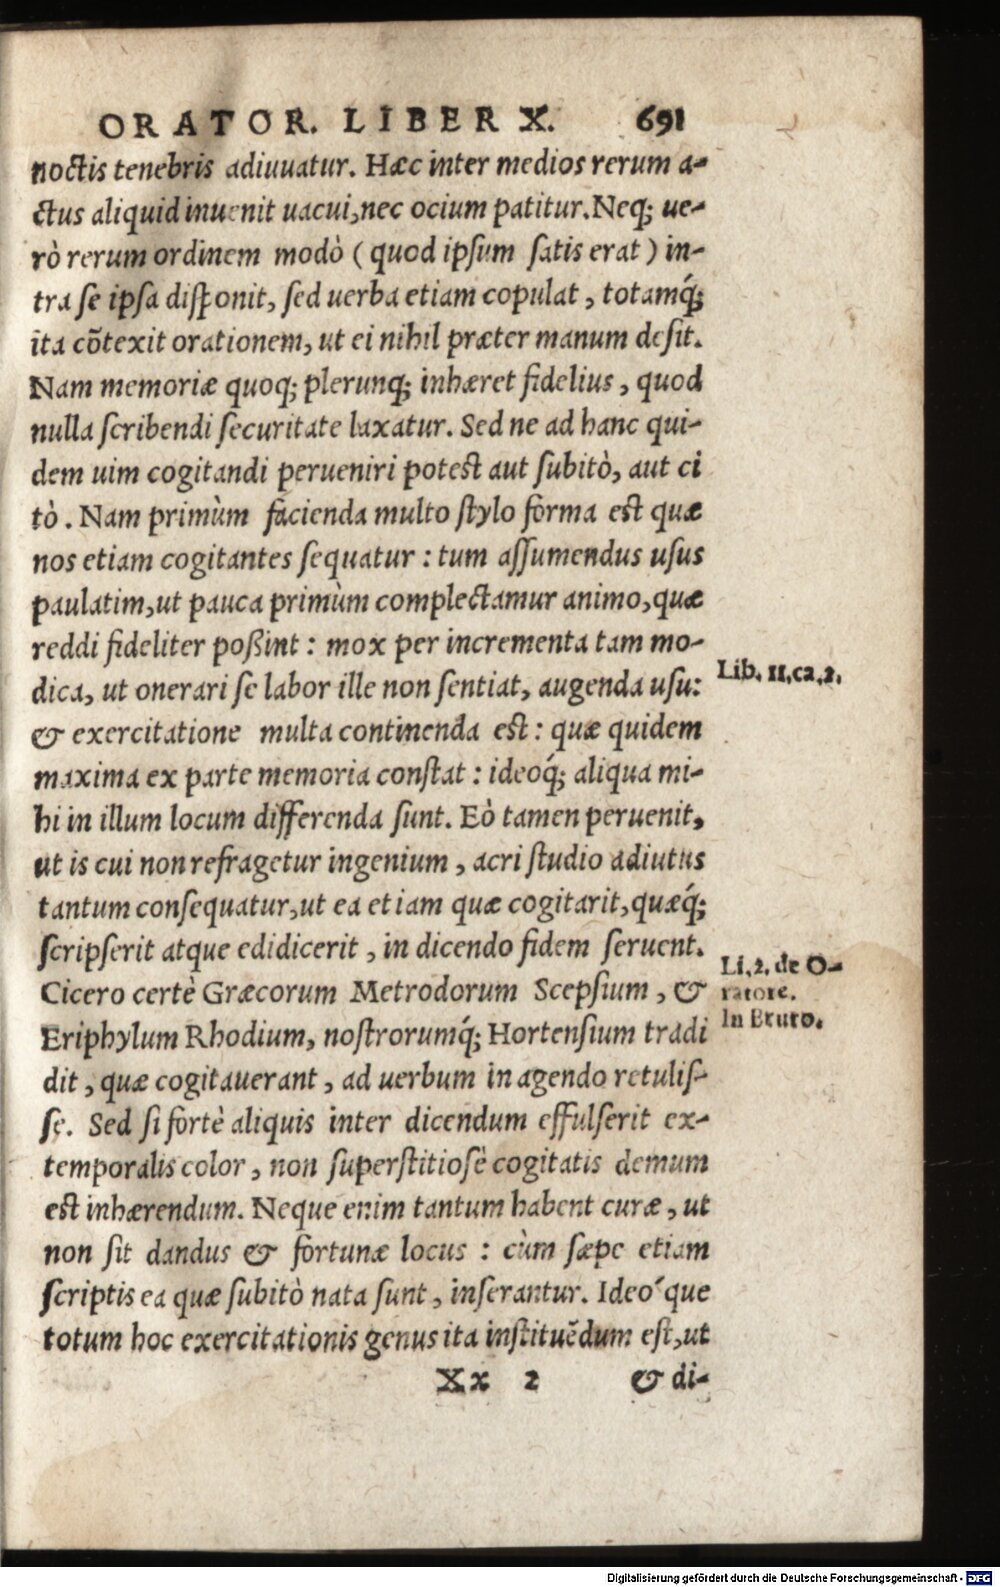 ORATOR. LIBER X. 691
noctis tenebris adiuuatur. Hæc inter medios rerum a-
ctus aliquid inuenit uacui, nec ocium patitur. Neq; ue-
rò rerum ordinem modò ( quod ipsum satis erat ) in-
tra se ipsa disponit, sed uerba etiam copulat, totamq́;
ita cõtexit orationem, ut ei nihil præter manum desit.
Nam memoriæ quoq; plerunq; inhæret fidelius, quod
nulla scribendi securitate laxatur. Sed ne ad hanc qui-
dem uim cogitandi perueniri potest aut subitò, aut ci
tò. Nam primùm facienda multo stylo forma est quæ
nos etiam cogitantes sequatur : tum assumendus usus
paulatim, ut pauca primùm complectamur animo, quæ
reddi fideliter poßint : mox per incrementa tam mo-
dica, ut onerari se labor ille non sentiat, augenda usu:
Lib. 11. ca. 2.
& exercitatione multa continenda est : quæ quidem
maxima ex parte memoria constat : ideoq́; aliqua mi-
hi in illum locum differenda sunt. Eò tamen peruenit,
ut is cui non refragetur ingenium, acri studio adiutus
tantum consequatur, ut ea etiam quæ cogitarit, quæq́;
scripserit atque edidicerit, in dicendo fidem seruent.
Cicero certè Græcorum Metrodorum Scepsium, &
Eriphylum Rhodium, nostrorumq́; Hortensium tradi
dit, quæ cogitauerant, ad uerbum in agendo retulis-
Li. 2. de O-
ratore.
In Bruto.
se. Sed si fortè aliquis inter dicendum effulserit ex-
temporalis color, non superstitiosè cogitatis demum
est inhærendum. Neque enim tantum habent curæ, ut
non sit dandus & fortunæ locus : cùm sæpe etiam
scriptis ea quæ subitò nata sunt, inserantur. Ideó que
totum hoc exercitationis genus ita instituẽdum est, ut
Xx 2 & di-
Digitalisierung gefördert durch die Deutsche Forschungsgemeinschaft - DFG